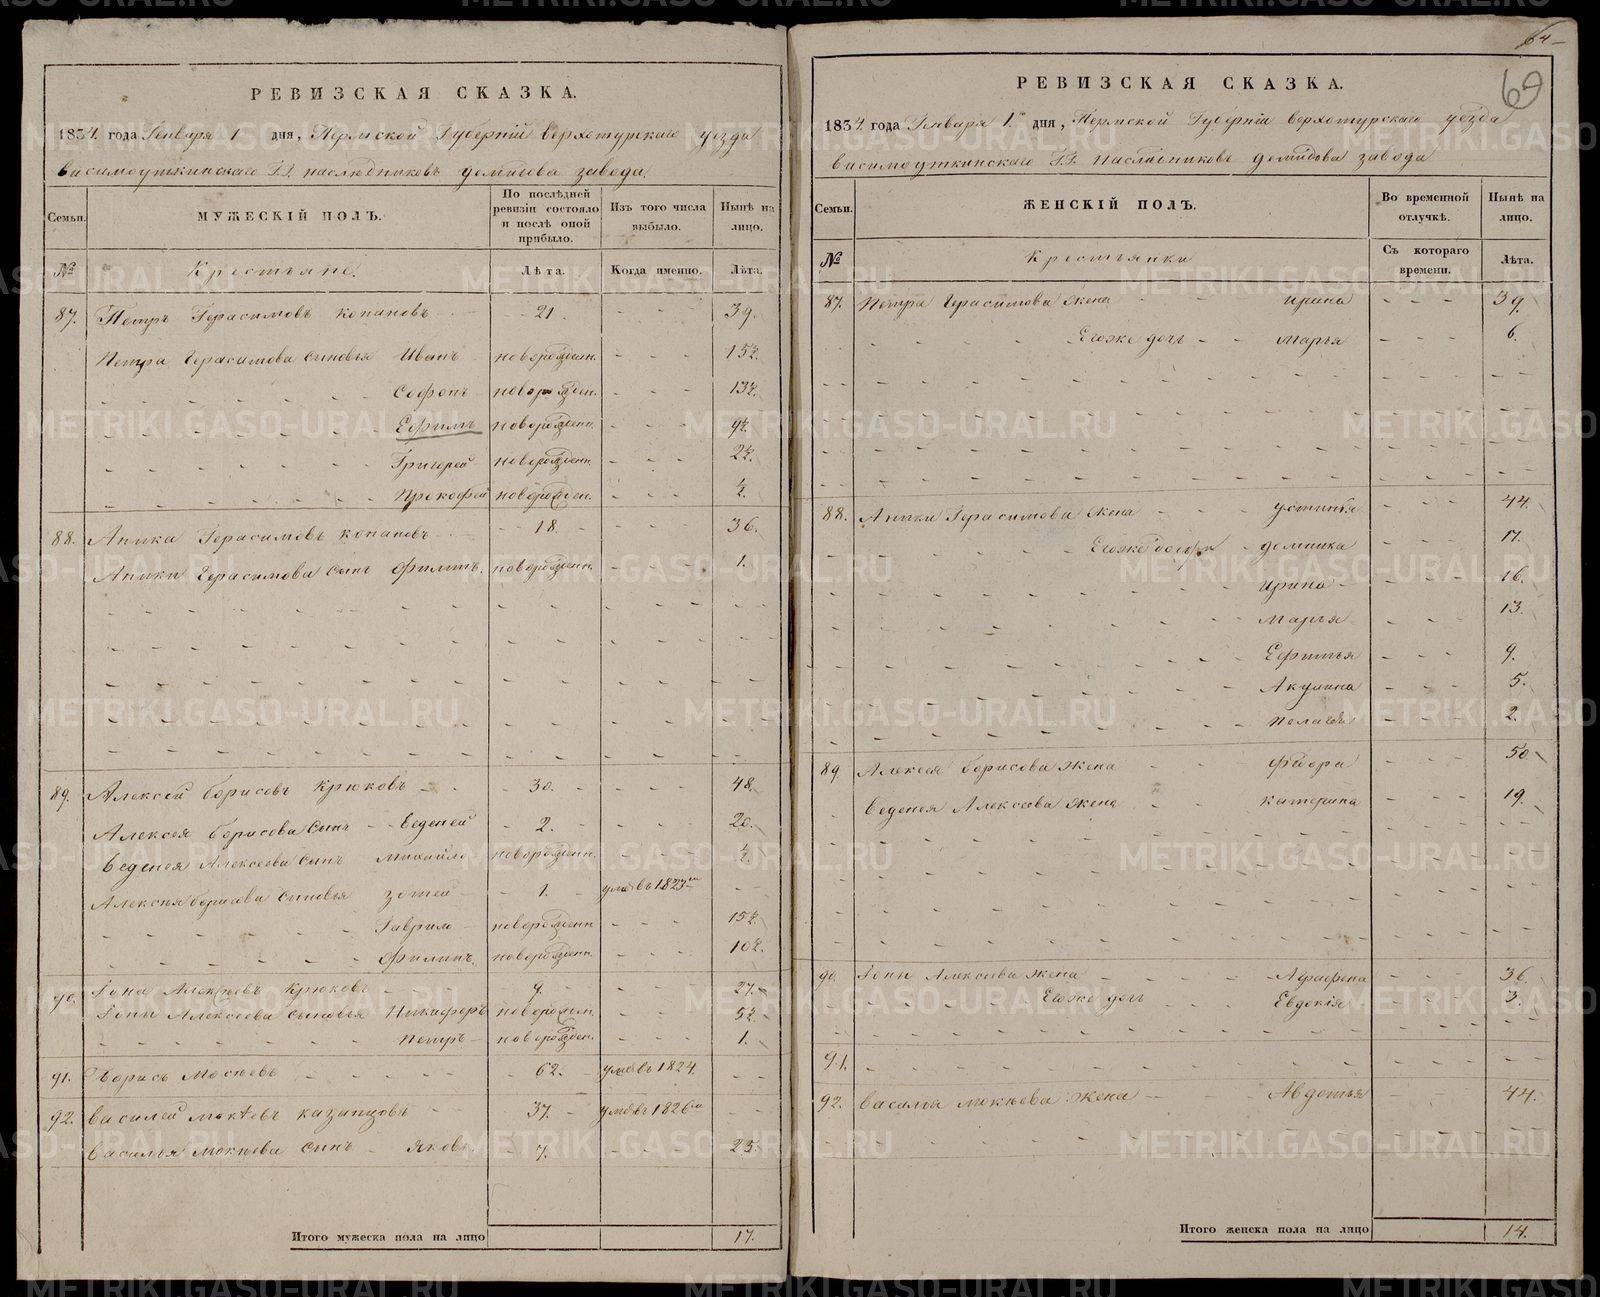 РЕВИЗСКАЯ СКАЗКА.
1834. года Генваря 1 дня, Пермской Губерніи верхотурскаго уезда
висимоуткинскаго Г.Г. наслюдниковъ демидова завода.
Семьи.
МУЖЕСКІЙ ПОЛЪ.
По послѣдней ревизіи состояло и послѣ оной прибыло.
Изъ того числа выбыло.
Нынѣ на лицо.
№
Крестьяне.
Лѣта.
Когда именно.
Лѣта.
87. Петръ Герасимовъ копановъ 21 39.
Петра Герасимова сыновья Иванъ новорожденн. 15½.
Софонъ новорожден. 13½.
Ефимъ новорожденн. 9½.
Григорей новорожденн. 2½.
Прокофей новорожден. ½.
88. Аника Герасимовъ копановъ 18. 36.
Аники Герасимова сынъ Филипъ. новорожденн. 1.
89. Алексей борисовъ Крюковъ 30. 48.
Алексея борисова сынъ Веденей 2. 20.
Веденея Алексеева сынъ михайло новорожденн. ½.
Алексѣя борисова сыновья зотей 1. умѣ въ 1823м
Гаврило новорожденн 15½.
Филипъ. новорожденн. 10½.
90. Іона Алексѣевъ Крюковъ 9. 27.
Іоны Алексеева сыновья Никифоръ новорожден. 5½.
Петръ новорожден. 1.
91. Борисъ Мосѣевъ 62. умѣ въ 1824.
92. василей мокѣевъ казанцовъ 37. умѣ въ 1826м
василья мокѣева сынъ Яковъ. 7. 25.
Итого мужеска пола на лицо 17.
64
69
РЕВИЗСКАЯ СКАЗКА.
1834. года Генваря 1го дня, Пермской Губерніи верхотурскаго уѣзда
висимоуткинскаго Г.Г. наслѣдниковъ демидова завода
Семьи.
ЖЕНСКІЙ ПОЛЪ.
Во временной отлучкѣ.
Нынѣ на лицо.
№
Крестьянки
Съ котораго времени.
Лѣта.
87. Петра Герасимова жена ирина 39.
Егоже дочь марья 6.
88. Аники Герасимова жена устинья 44.
Егоже дочери домника 17.
Ирина 16.
Марья 13.
Ефимья 9.
Акулина 5.
Пелагея 2.
89 Алексея борисова жена Федора 50
веденея Алексеева жена катерина 19.
90. Іоны Алексеева жена Аграфена 36
Егоже дочь Евдокія 3.
91.
92. василья мокѣева жена Авдотья 44.
Итого женска пола на лицо 14.
METRIKI.GASO-URAL.RU